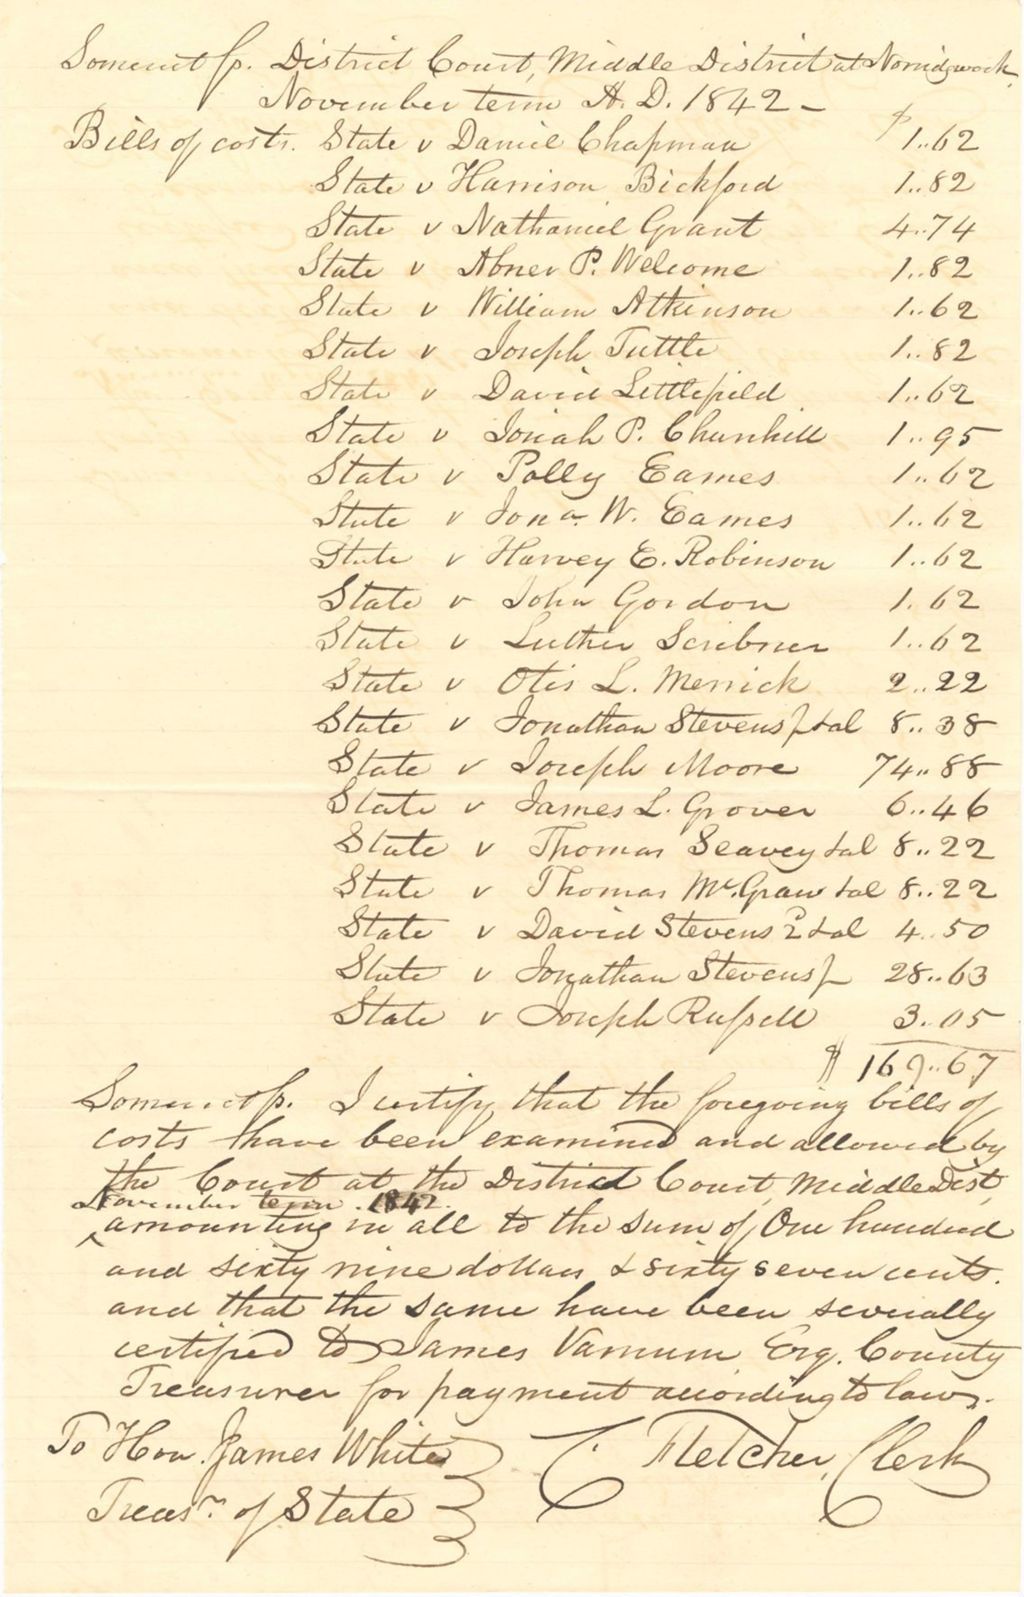 Somerset ss. District Court, Middle District at Norridgewock,
November term A. D. 1842 -
Bills of costs. State v Daniel Chapman $ 1..62
State v Harrison Bickford 1..82
State v Nathaniel Grant 4..74
State v Abner P. Welcome 1..82
State v William Atkinson 1..62
State v Joseph Tuttle 1..82
State v David Littlefield 1..62
State v Josiah P. Churchill 1..95
State v Polly Eames 1..62
State v Jona. W. Eames 1..62
State v Harvey E. Robinson 1..62
State v John Gordon 1.62
State v Luther Scribner 1..62
State v Otis L. Merrick 2..22
State v Jonathan Stevens Jr & al 8..38
State v Joseph Moore 74..88
State v James L. Grover 6..46
State v Thomas Seavey & al 8..22
State v Thomas McGraw & al 8..22
State v David Stevens 2d & al 4..50
State v Jonathan Stevens Jr 28..63
State v Joseph Russell 3..05
$ 169..67
Somerset ss. I certify that the foregoing bills of
costs have been examined and allowed by
the Court at the District Court, Middle Dist,
November term. 1842.
^amounting in all to the sum of One hundred
and sixty nine dollars & sixty seven cents.
and that the same have been severally
certified to James Varnum Esq. County
Treasurer for payment according to law.
To Hon. James White C. Fletcher, Clerk
Treasr. of State